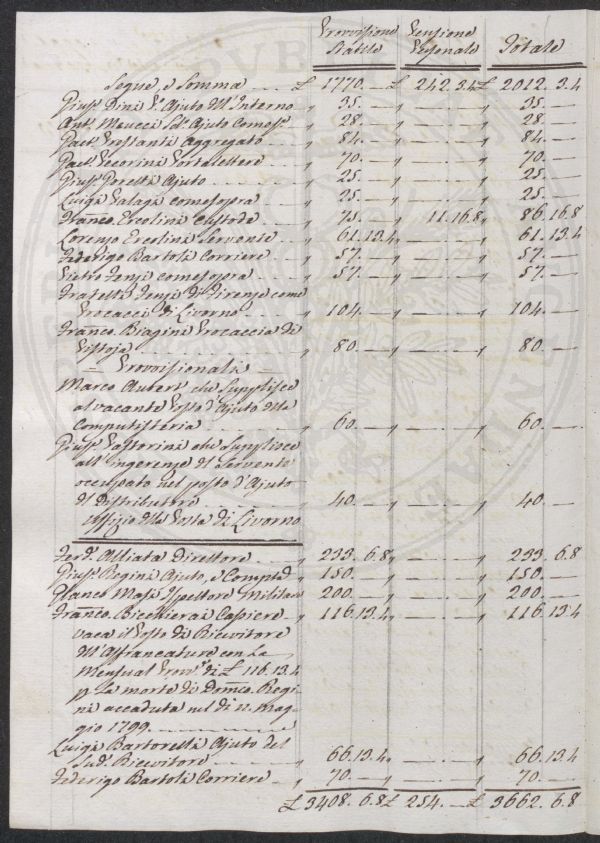 Provvisione Pensione
Stabile Personale Totale
Segue, e Somma £ 1770. — £ 242.3.4 £ 2012.3.4
Gius.e Dini P.o Ajuto dell'Interno „ 35. — „ — „ 35. —
Ant.o Meucci Ajuto Comes.o „ 28. — „ — „ 28. —
Gaet.o Prestanti Aggregato „ 84. — „ — „ 84. —
Gaet.o Pecorini Portalettere „ 70. — „ — „ 70. —
Gius.e Poretti Ajuto „ 25. — „ — „ 25. —
Luigi Palagi come sopra „ 25. — „ — „ 25. —
Franco. Ercolini Custode „ 75. — „ 11.16.8 „ 86.16.8
Lorenzo Ercolini Servente „ 61.13.4 „ — „ 61.13.4
Federigo Bartoli Corriere „ 57. — „ — „ 57. —
Pietro Fenzi come sopra „ 57. — „ — „ 57. —
Fratelli Fenzi di Firenze come
Procacci di Livorno „ 104. — „ — „ 104. —
Franco. Biagini Procaccia di
Pistoja „ 80. — „ — „ 80. —
= Provvisionali =
Marco Aubert che Supplisce
al vacante Posto d'Ajuto della
Computisteria „ 60. — „ — „ 60. —
Gius.e Pastorini che Supplisce
all'ingerenze di Servente
occupato nel posto d'Ajuto
di Distributore „ 40. — „ — „ 40. —
Uffizio della Posta di Livorno
Ferd.o Alliata Direttore „ 233.6.8 „ — „ 233.6.8
Gius.e Regini Ajuto, e Comp.ta „ 150. — „ — „ 150. —
Masi Ispettore Militare „ 200. — „ — „ 200. —
Franco. Bicchierai Cassiere „ 116.13.4 „ — „ 116.13.4
vaca il Posto di Ricevitore
dell'Affrancature con La
Mensual Provv.e di £ 116.13.4
p. La morte di Domco. Regi-
ni accaduta nel dì 12. Mag-
gio 1799.
Luigi Bartorelli Ajuto del
Sud.o Ricevitore „ 66.13.4 „ — „ 66.13.4
Federigo Bartoli Corriere „ 70. — „ — „ 70. —
£ 3408.6.8 £ 254. — £ 3662.6.8